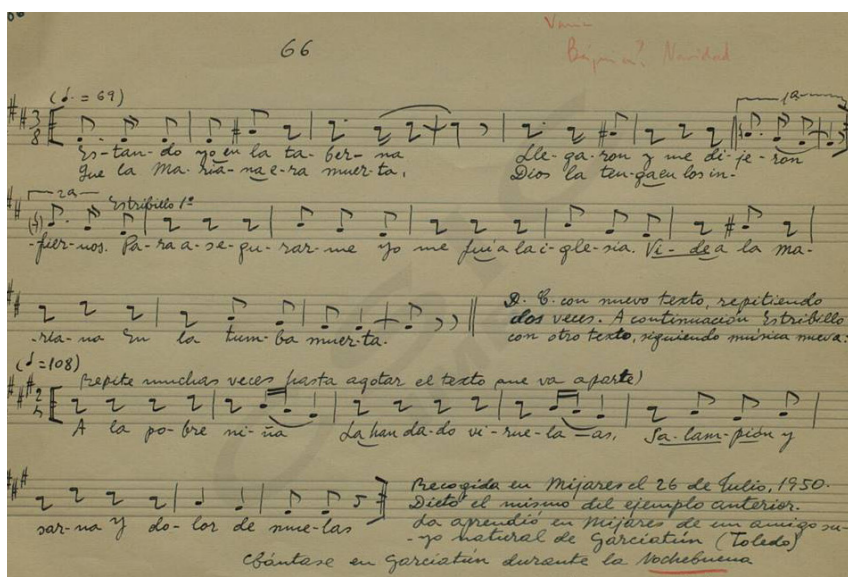 66
Varia
Báquica? Navidad
(♩. = 69)
1a
Es-tan-do yo en la ta-ber-na Lle-ga-ron y me di-je-ron
Que la Ma-ria-na e-ra muer-ta. Dios la ten-ga en los in-
2a Estribillo 1º
-fier-nos. Pa-ra a-se-gu-rar-me yo me fui a la i-gle-sia. Vi-de a la Ma-
-ria-na En la tum-ba muer-ta.
D. C. con nuevo texto, repitiendo
dos veces. A continuación Estribillo
con otro texto, siguiendo música nueva:
(♩=108)
(Repite muchas veces hasta agotar el texto que va aparte)
A la po-bre ni-ña La han da-do vi-rue-la-as, Sa-lam-pión y
sar-na Y do-lor de mue-las
Recogida en Mijares el 26 de Julio, 1950.
Dictó el mismo del ejemplo anterior.
La aprendió en Mijares de un amigo su-
-yo natural de Garciatún (Toledo)
Cántase en Garciatún durante la Nochebuena